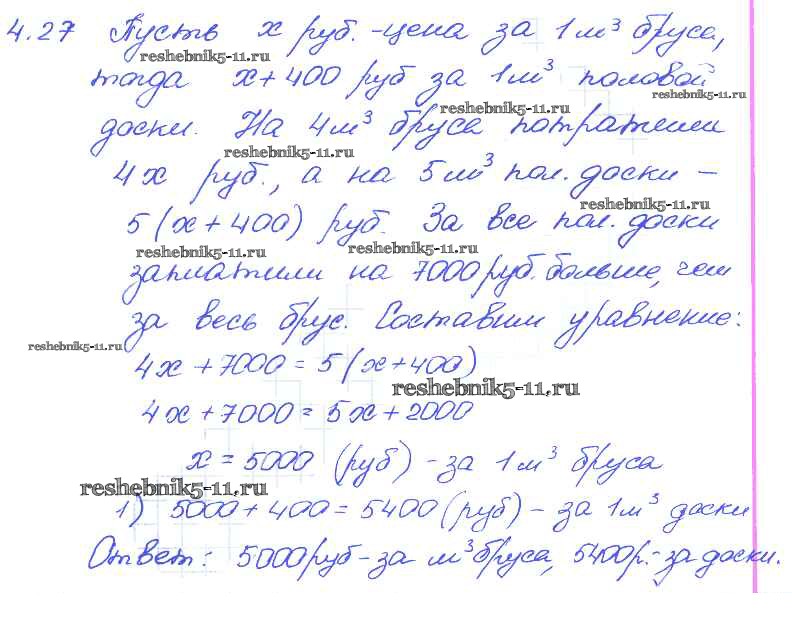 4.27 Пусть x руб. - цена за 1 м³ бруса,
reshebnik5-11.ru
тогда x + 400 руб за 1 м³ половой
reshebnik5-11.ru
reshebnik5-11.ru
доски. На 4 м³ бруса потратили
reshebnik5-11.ru
4x руб., а на 5 м³ пол. доски –
reshebnik5-11.ru
5(x + 400) руб. За все пол. доски
reshebnik5-11.ru reshebnik5-11.ru
заплатили на 7000 руб. больше, чем
за весь брус. Составим уравнение:
reshebnik5-11.ru
4x + 7000 = 5(x+400)
reshebnik5-11.ru
4x + 7000 = 5x + 2000
x = 5000 (руб) - за 1 м³ бруса
reshebnik5-11.ru
1) 5000 + 400 = 5400 (руб) - за 1 м³ доски
Ответ: 5000 руб - за м³ бруса, 5400 р. - за доски.